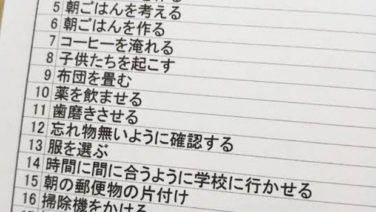 5 朝ごはんを考える
6 朝ごはんを作る
7 コーヒーを淹れる
8 子供たちを起こす
9 布団を畳む
10 薬を飲ませる
11 歯磨きさせる
12 忘れ物無いように確認する
13 服を選ぶ
14 時間に間に合うように学校に行かせる
15 朝の郵便物の片付け
16 掃除機をかける